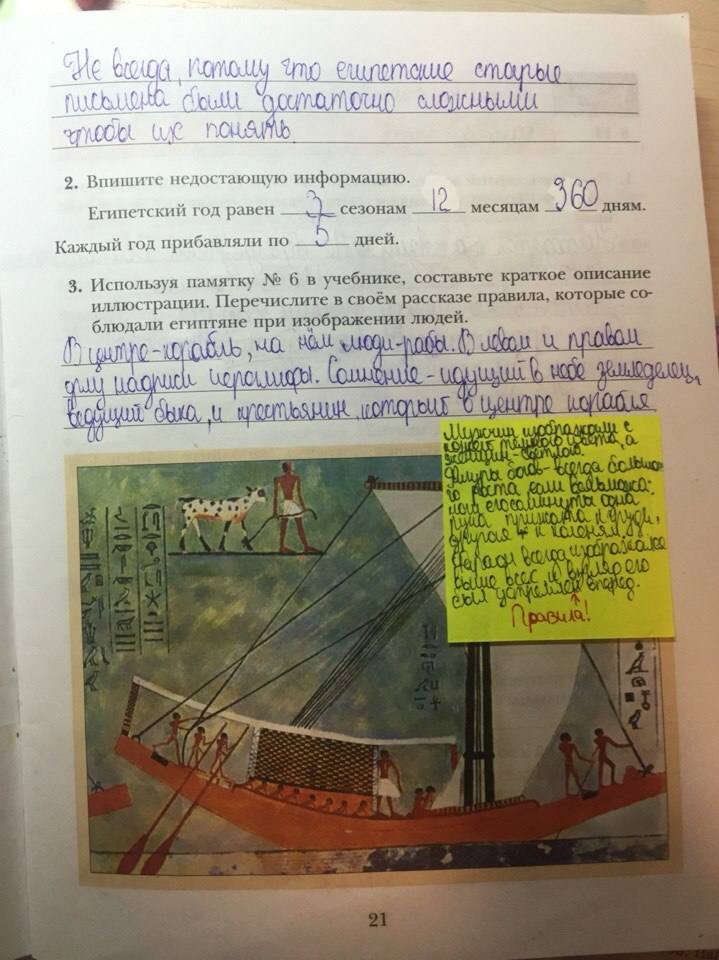 Не всегда, потому что египетские старые
письмена были достаточно сложными
чтобы их понять.
2. Впишите недостающую информацию.
Египетский год равен 3 сезонам 12 месяцам 360 дням.
Каждый год прибавляли по 5 дней.
3. Используя памятку № 6 в учебнике, составьте краткое описание
иллюстрации. Перечислите в своём рассказе правила, которые со-
блюдали египтяне при изображении людей.
В центре-корабль, на нём люди-рабы. В левом и правом
углу надписи иероглифы. Сомнение-идущий в небе земледелец,
ведущий быка, и крестьянин который в центре корабля
Мужчин изображали с
кожей темного цвета, а
женщин-светлой.
Фигуры богов-всегда большо-
го роста, если вельможа-
одна
рука прижата к груди,
другая к коленям.
Фараон всегда изображался
выше всех и взгляд его
был устремлен вперед.
Правила!
21